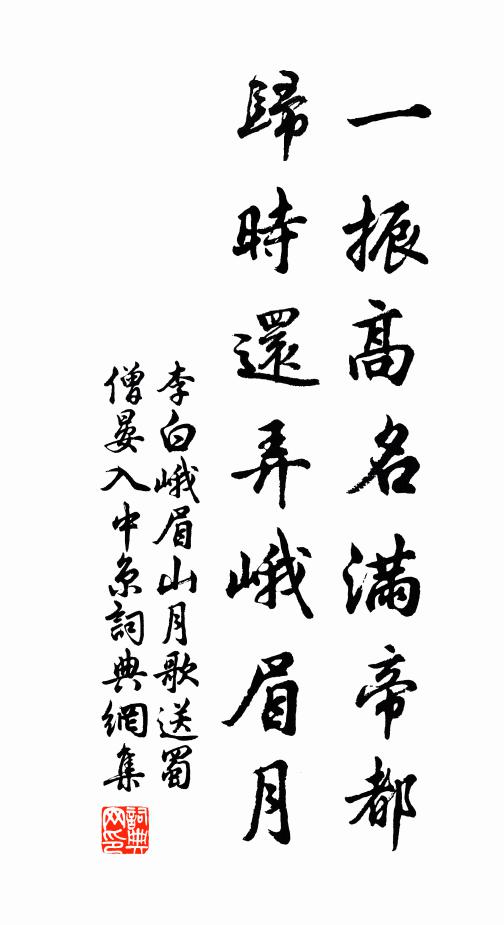 一振高名滿帝都
歸時還弄峨眉月
李白峨眉山月歌送蜀
僧晏入中京詞典網集
詞典網印